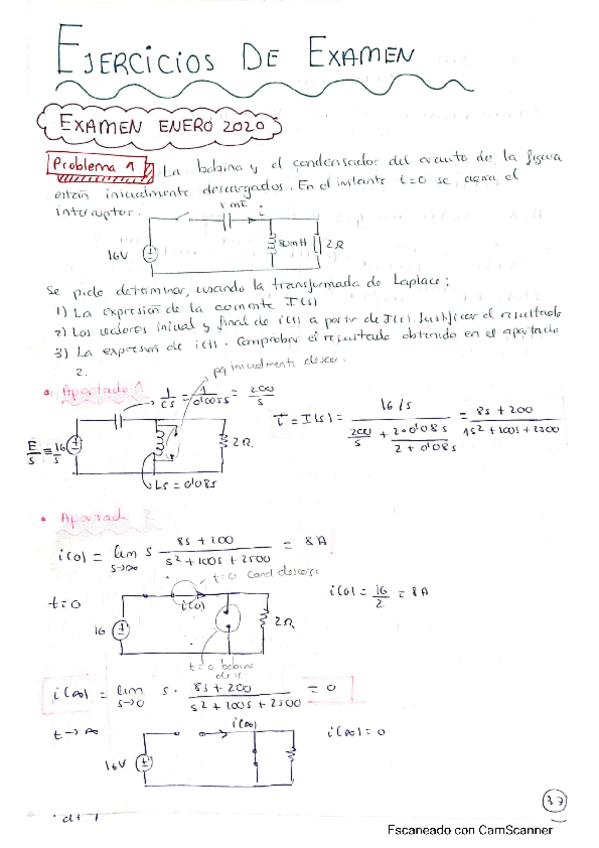 EJERCICIOS DE EXAMEN
EXAMEN ENERO 2020
Problema 1 La bobina y el condensador del circuito de la figura
están inicialmente descargados. En el instante t=0 se cierra el
interruptor.
16V
80mH
2Ω
Se pide determinar, usando la transformada de Laplace:
1) La expresión de la corriente I(s)
2) Los valores inicial y final de i(t) a partir de I(s). Justificar el resultado
3) La expresión de i(t). Comprobar el resultado obtenido en el apartado
2.
pq inicialmente descar.
• Apartado 1
1/Cs = 1/0'005s = 200/s
E/s = 16/s
2Ω
Ls = 0'08s
I = I(s) = (16/s) / (200/s + (2·0'08s)/(2+0'08s)) = (8s+200)/(1s²+100s+2500)
• Apartado 2
i(0) = lim s→∞ s (8s+200)/(s²+100s+2500) = 8A
t=0 cond descarga
t=0
i(0)
16
2Ω
i(0) = 16/2 = 8A
t=0 bobina
i(∞) = lim s→0 s· (8s+200)/(s²+100s+2500) = 0
t→∞
i(∞)
16V
i(∞)=0
37
Escaneado con CamScanner